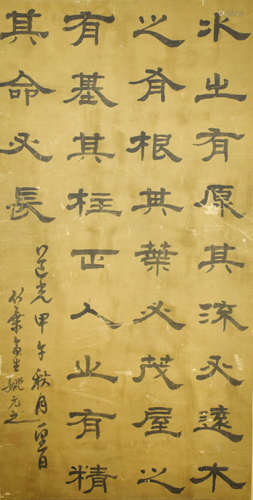 水之有原其流必遠木
之有根其葉必茂屋之
有基其柱正人之有精
其命必長
道光甲午秋月
姚元之